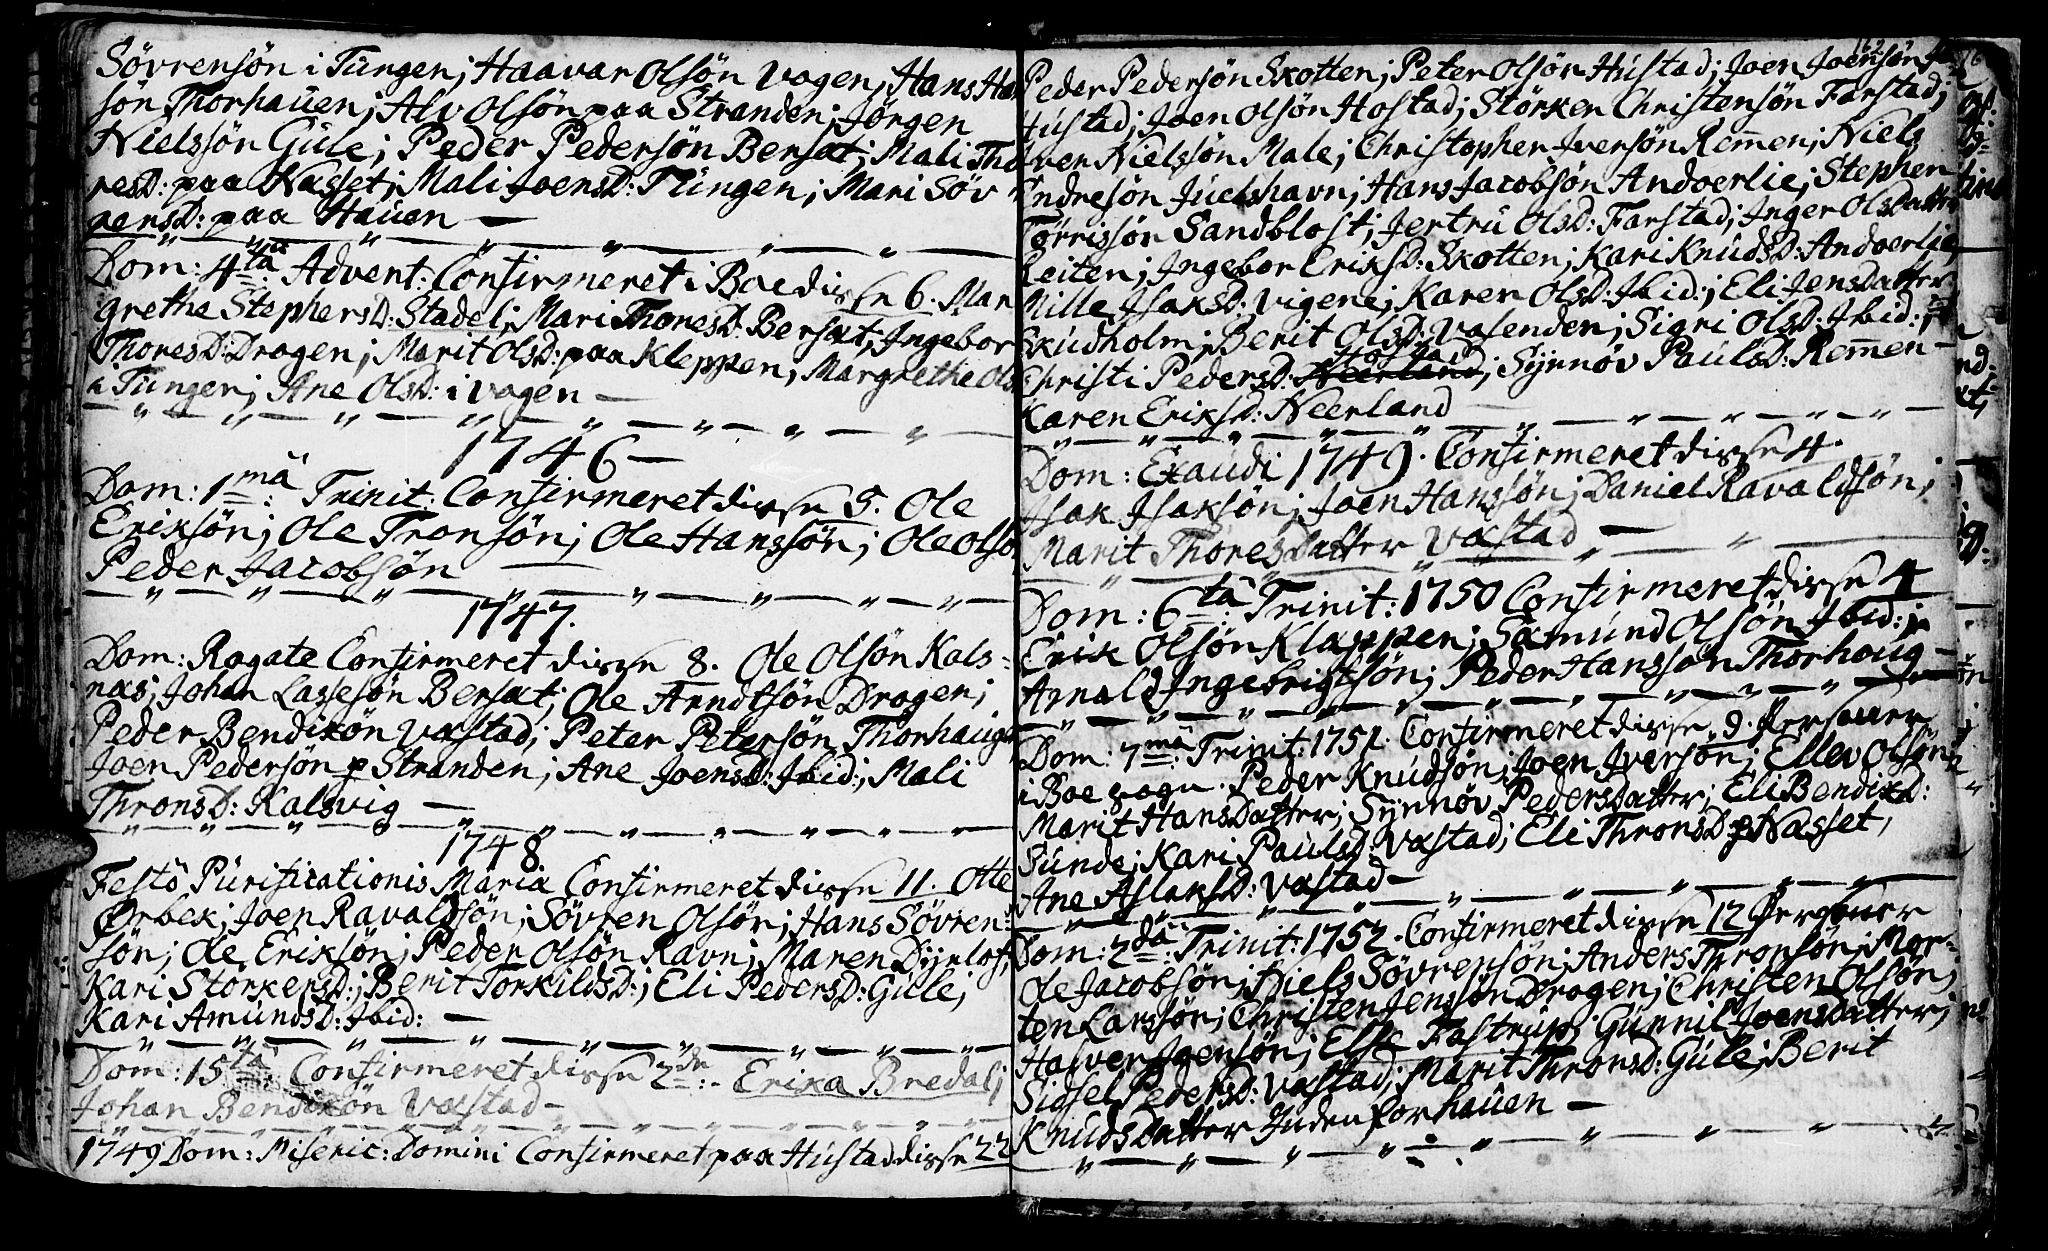 Sövrensön i Tüngen; Haavar Olsön Vagen; Hans Han
sön Thorhaüen; Alv Olsön paa Stranden; Jörgen
Nielssön Güle; Peder Pedersön Bersæt; Mali Tho
resD: paa Næsset; Mali JoensD: Tüngen; Mari Söv
rensD: paa Haüen —
Dom: 4ta Advent: Confirmeret i Boe disse 6. Mar
grethe StephensD: Stadel; Mari ThoresD: Bersæt; Ingebor
ThoresD: Dragen; Marit OlsD: paa Kleppen; Margrethe Ols
i Tüngen; Ane OlsD: i Vagen —
1746 —
Dom: 1ma Trinit: Confirmeret disse 5. Ole
Eriksön; Ole Tronsön; Ole Hanssön; Ole Olsö
Peder Jacobsön —
1747.
Dom: Rogate Confirmeret disse 8. Ole Olsön Kals=
næs; Johan Lassesön Bersæt; Ole Arndtsön Dragen;
Peder Bendixön Væstad; Peter Petersön Thorhaüg
Joen Pedersön p Stranden; Ane JoensD: Ibid; Mali
ThronsD: Kalsvig —
1748
Festo Pürificationis Mariæ Confirmeret disse 11. Otte
Ørbek; Joen Ravaldsön; Sövren Olsön; Hans Sövren=
sön; Ole Eriksön; Peder Olsön Ravn; Maren Dyrlof;
Kari StörkersD:; Berit TorkildsD:; Eli PedersD: Güle;
Kari AmündsD: Ibid: —
Dom: 15ta Confirmeret disse 2de:- Erika Bredal;
Johan Bendixön Væstad —
1749 Dom: Miseric: Domini Confirmeret paa Hüstad disse 22
162
Peder Pedersön Skotten; Peter Olsön Hüstad; Joen Joensön
Hüstad; Joen Olsön Hostad; Störker Christensön Farstad;
Iver Nielssön Male; Christopher Iversön Remen; Niels
Endresön Jüelshavn; Hans Jacobsön Andoerlie; Stephen
Törrissön Sandblost; Jertrü OlsD: Farstad; Inger Olsdatter
Reiten; Ingebor EriksD: Skotten; Kari KnüdsD: Andoerlie
Mille IsaksD: Vigene; Karen OlsD: Ibid:; Eli Jensdatter
Sküdholm; Berit OlsD: Vasenden; Sigri OlsD: Ibid:;
Hostad
Christi PedersD: Neerland; Synnöv PaülsD: Remen —
Karen EriksD: Neerland
Dom: Exaüdi 1749. Confirmeret disse 4.
Isak Isaksön; Joen Hanssön; Daniel Ravaldsön;
Marit Thoresdatter Væstad —
Dom: 6ta Trinit: 1750 Confirmeret disse 4
Erik Olsön Klappen; Sæmünd Olsön Ibid:;
Arnald Ingebrigtsön; Peder Hanssön Thorhoug —
Dom: 7ma Trinit: 1751. Confirmeret disse 9. Personer
i Boe Sogn. Peder Knüdsön; Joen Iversön; Ellev Olsön
Marit Hansdatter; Synnöv Pedersdatter; Eli BendixD:
Sünde; Kari PaülsD: Væstad; Eli ThronsD: p Næsset,
Ane AslaksD: Væstad —
Dom: 2da Trinit: 1752. Confirmeret disse 12 Personer
Ole Jacobsön; Niels Sövrensön; Anders Thronsön; Mor=
ten Larssön; Christen Jenssön Dragen; Christen Olsön
Halver Joensön; Else Fastrüp; Günnil Joensdatter;
Sidsel PedersD: Væstad; Marit ThronsD: Güle; Berit
Knüdsdatter Inden for haüen —